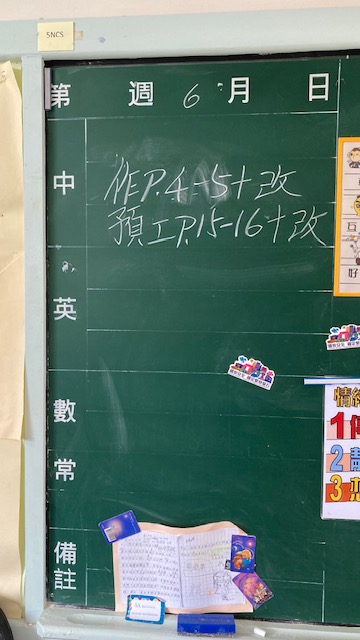 5NCS
第 週 6 月 日
中
作P.4-5+改
預工P.15-16+改
英
數
常
備註
情緒
1
2
3